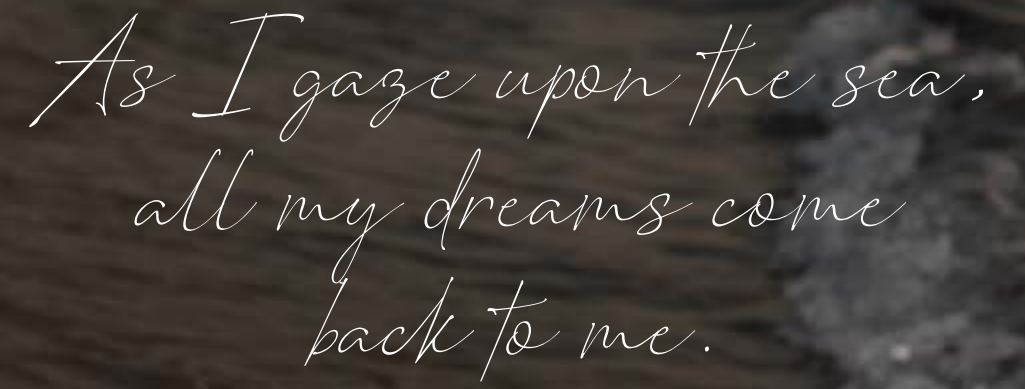 As I gaze upon the sea,
all my dreams come
back to me.